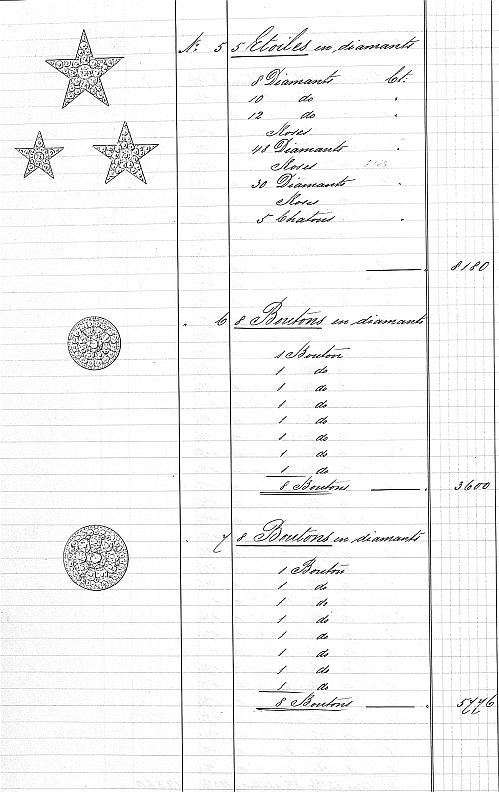 No. 5 5 Etoiles en diamants
8 Diamants Ct:
10 do "
12 do "
Roses
48 Diamants "
Roses
30 Diamants "
Roses
5 Chatons "
8180
" 6 8 Boutons en diamants
1 Bouton
1 do
1 do
1 do
1 do
1 do
1 do
1 do
8 Boutons 3600
" 7 8 Boutons en diamants
1 Bouton
1 do
1 do
1 do
1 do
1 do
1 do
1 do
8 Boutons 5776